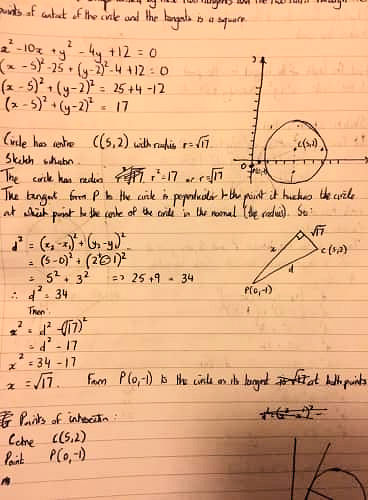 points of contact of the circle and the tangents is a square.
x² - 10x + y² - 4y + 12 = 0
(x - 5)² - 25 + (y-2)² - 4 + 12 = 0
(x - 5)² + (y-2)² = 25 + 4 - 12
(x - 5)² + (y-2)² = 17
Circle has centre C(5,2) with radius r = √17.
Sketch
C(5,2)
The circle has radius r² = 17 or r = √17
The tangent from P to the circle is perpendicular to the point it touches the circle
at which point to the centre of the circle is the normal (the radius). So:
d² = (x₂ - x₁)² + (y₂ - y₁)²
= (5-0)² + (2--1)²
= 5² + 3² => 25 + 9 = 34
∴ d² = 34
√17
x
C(5,2)
d
P(0,-1)
Then:
x² = d² - (√17)²
= d² - 17
x² = 34 - 17
x = √17. From P(0,-1) to the circle on its tangent is √17 at both points
Points of intersection:
Centre C(5,2)
Point P(0,-1)